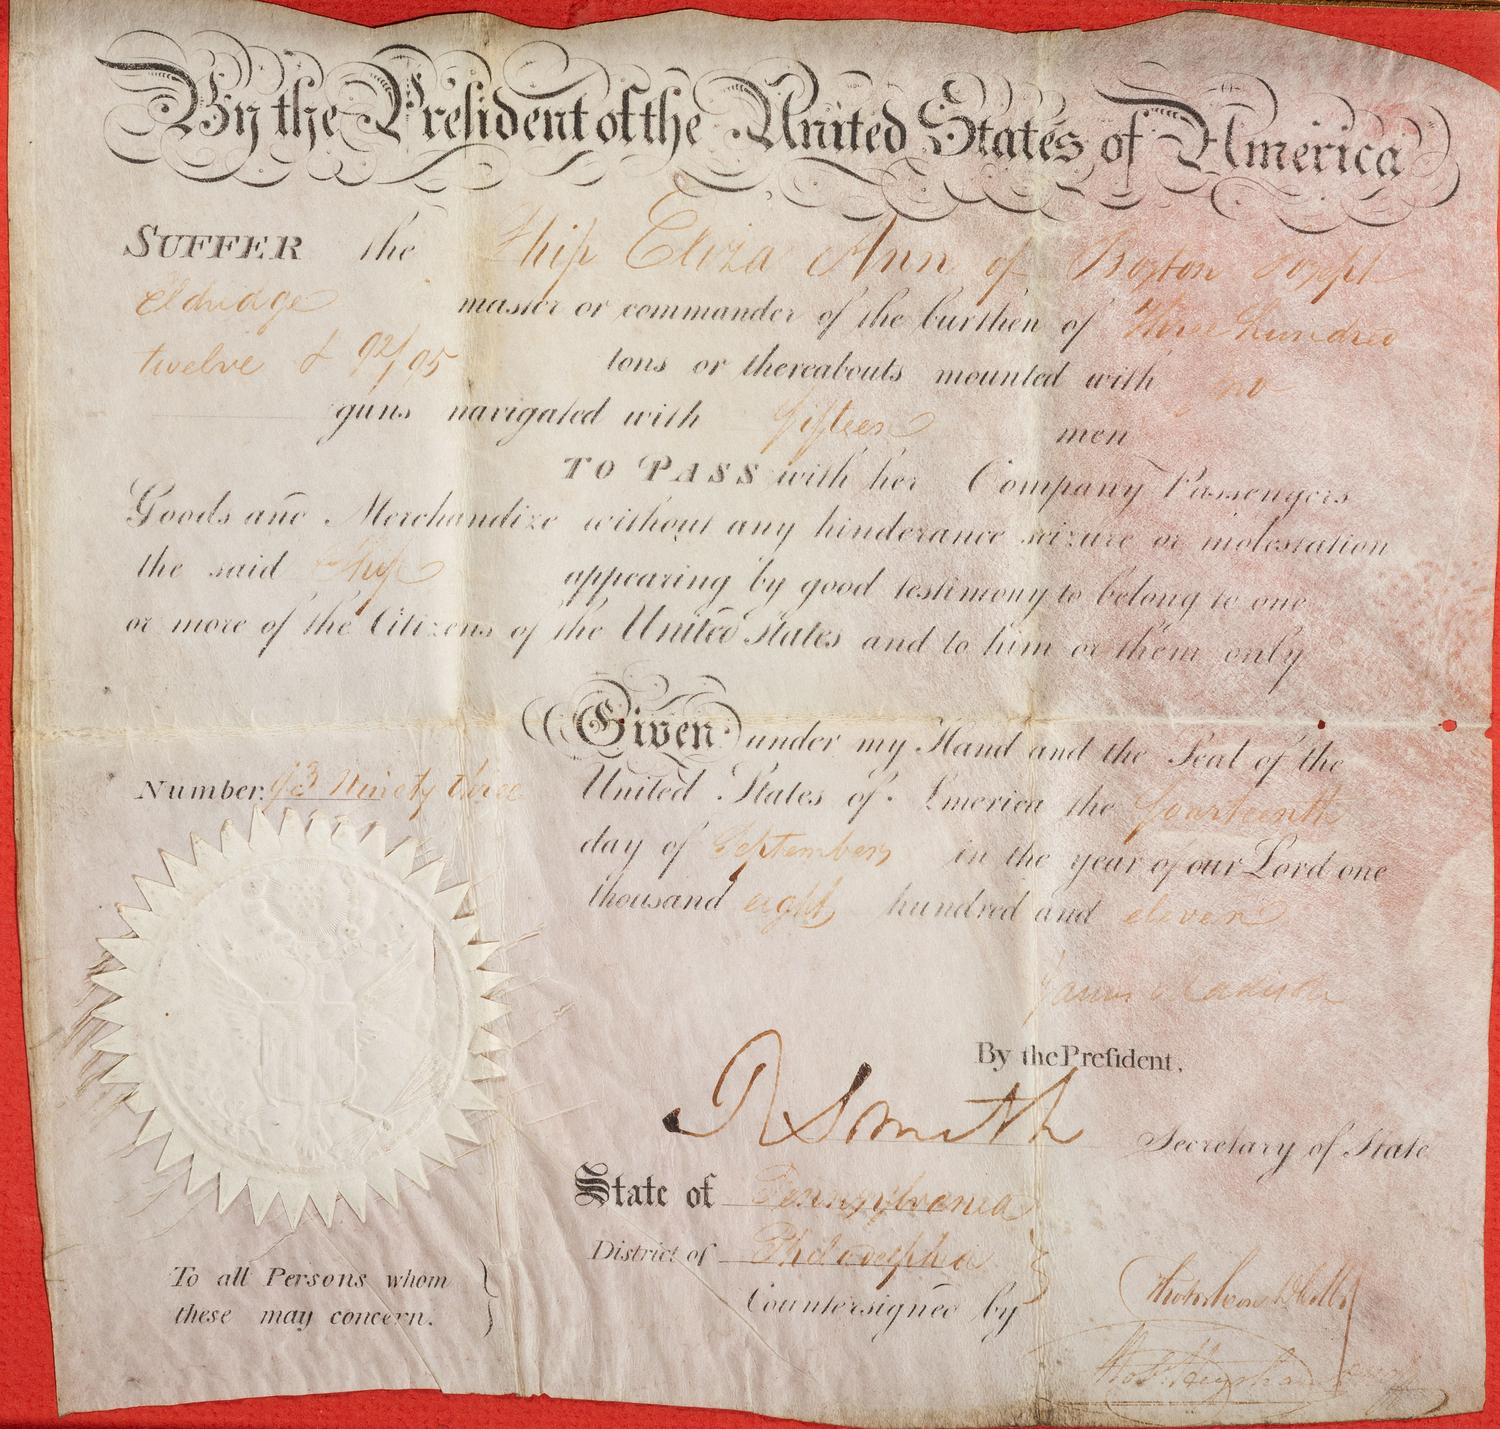 By the President of the United States of America
SUFFER the Ship Eliza Ann of Boston
Eldridge master or commander of the burthen of Three hundred
twelve & 92/95 tons or thereabouts mounted with no
guns navigated with fifteen men
TO PASS with her Company Passengers
Goods and Merchandize without any hinderance seizure or molestation
the said Ship appearing by good testimony to belong to one
or more of the Citizens of the United States and to him or them only
Given under my Hand and the Seal of the
Number. 93 Ninety three
United States of America the fourteenth
day of September in the year of our Lord one
thousand eight hundred and eleven
James Madison
By the President,
R Smith Secretary of State
State of Pennsylvania
District of Philadelphia
To all Persons whom
these may concern.
Countersigned by